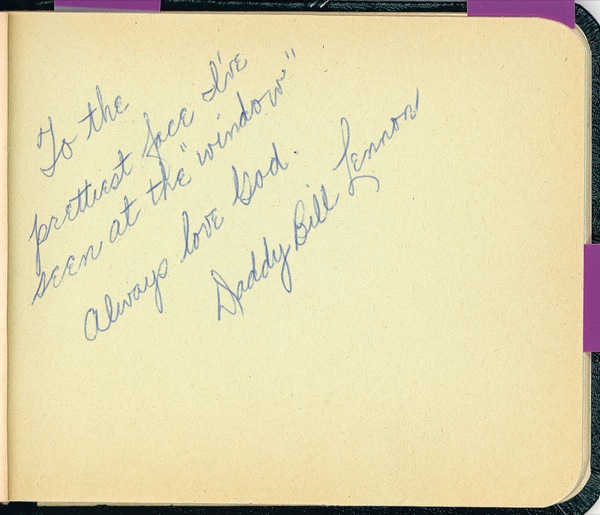 To the
prettiest face I've
seen at the "window"
Always love God.
Daddy Bill Lennon